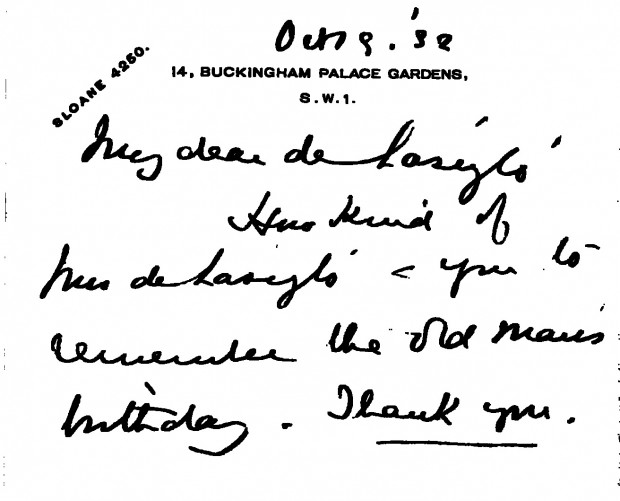 Oct 9. '32
SLOANE 4250.
14, BUCKINGHAM PALACE GARDENS,
S.W.1.
My dear de László
How kind of
Mrs de László & you to
remember the old man's
birthday. Thank you.